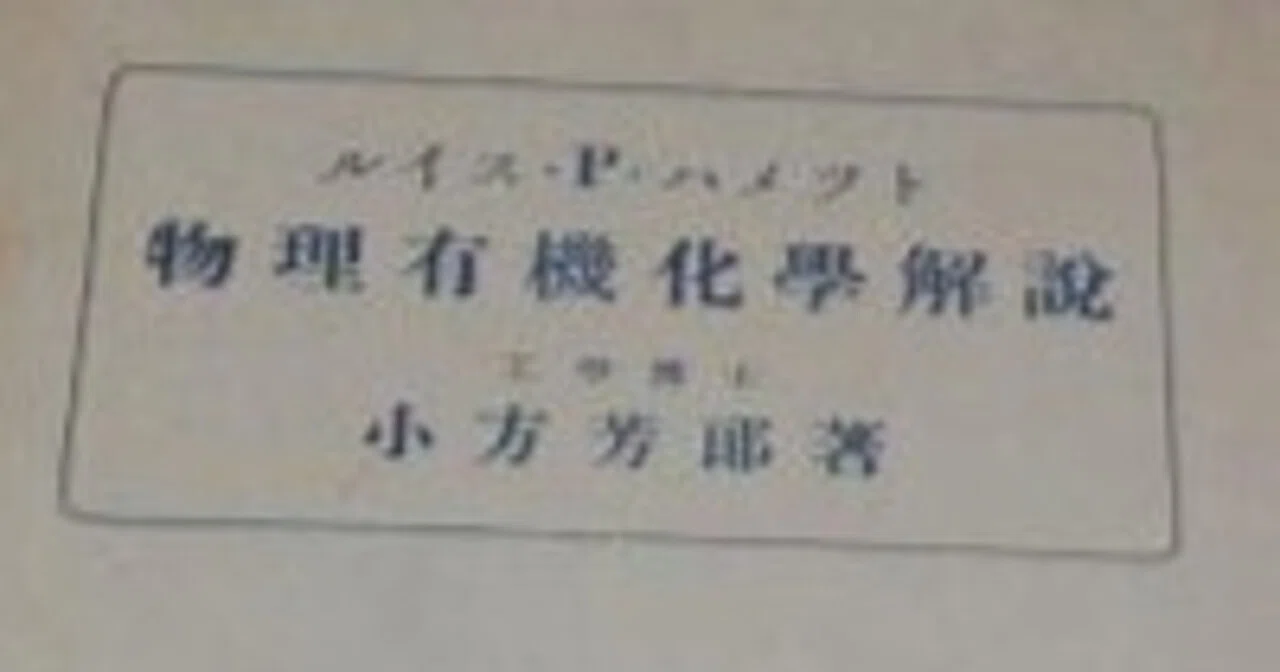 ルイス・P・ハメット
物理有機化學解說
工學博士
小方芳郎著